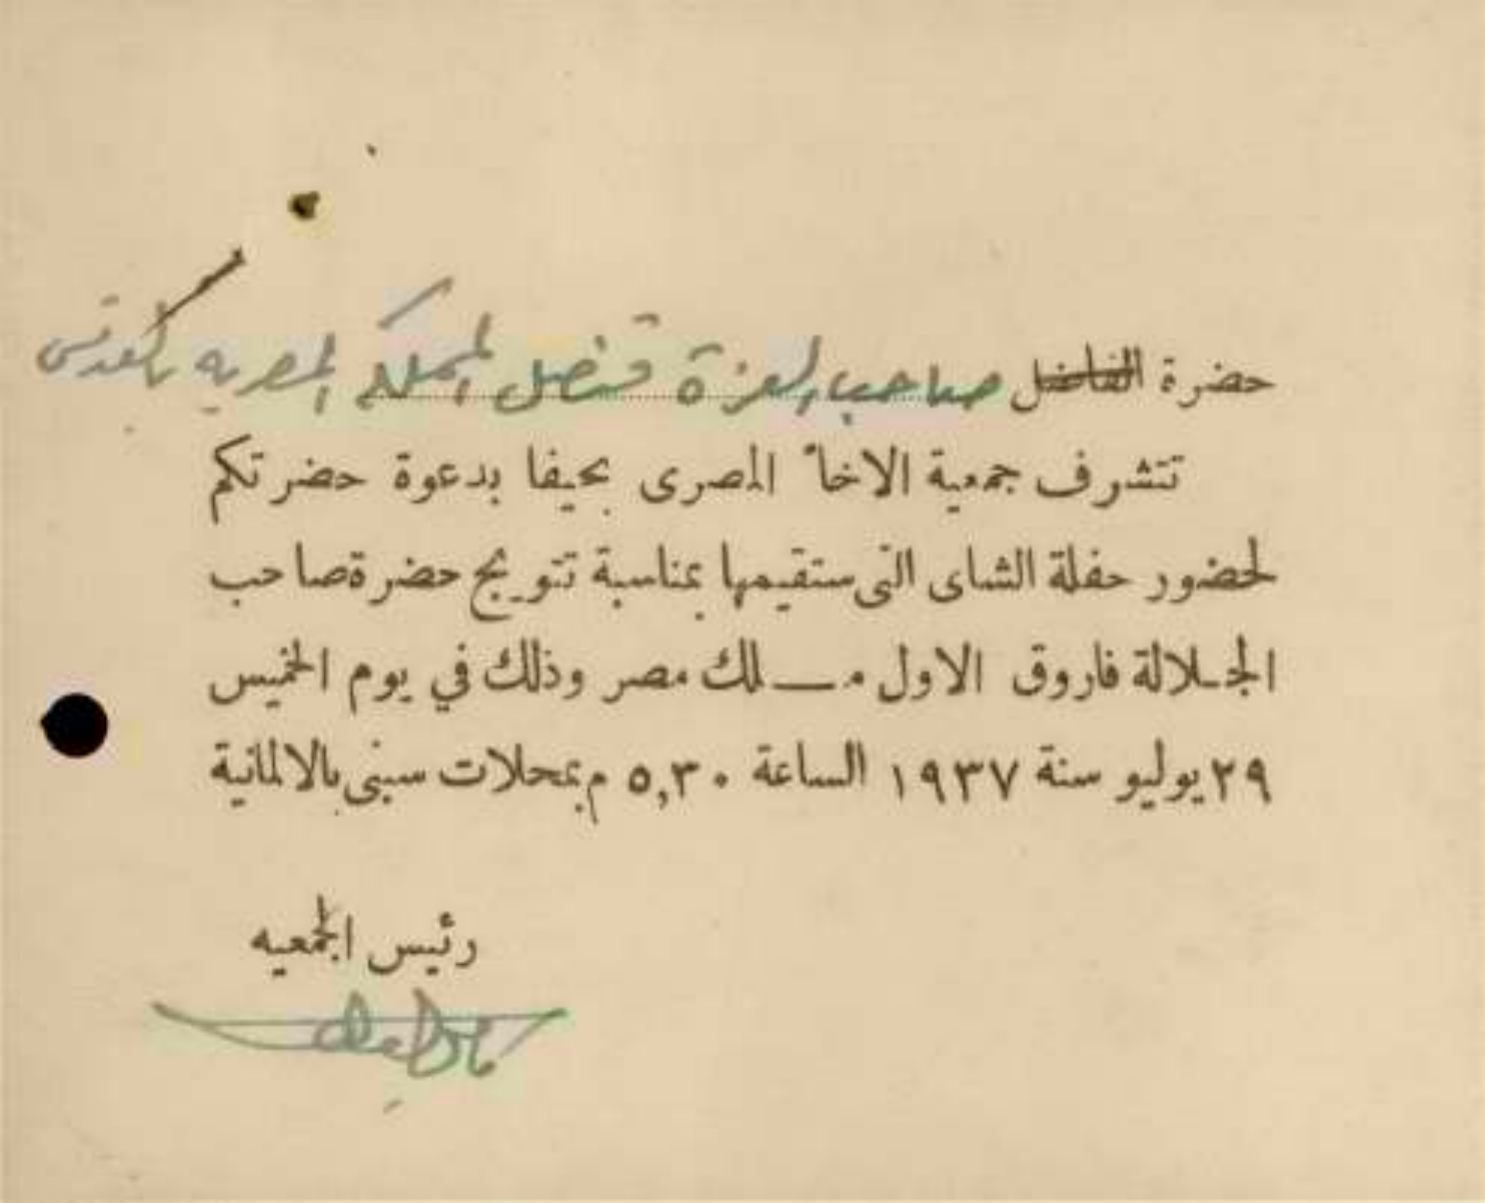 حضرة الفاضل صاحب العزة قنصل المملكة المصرية بالقدس
تتشرف جمعية الاخاء المصرى بحيفا بدعوة حضرتكم
لحضور حفلة الشاى التى ستقيمها بمناسبة تتويج حضرة صاحب
الجـلالة فاروق الاول مــلك مصر وذلك في يوم الخميس
٢٩ يوليو سنة ١٩٣٧ الساعة ٥,٣٠ م بمحلات سبنى بالالمانية
رئيس الجمعيه